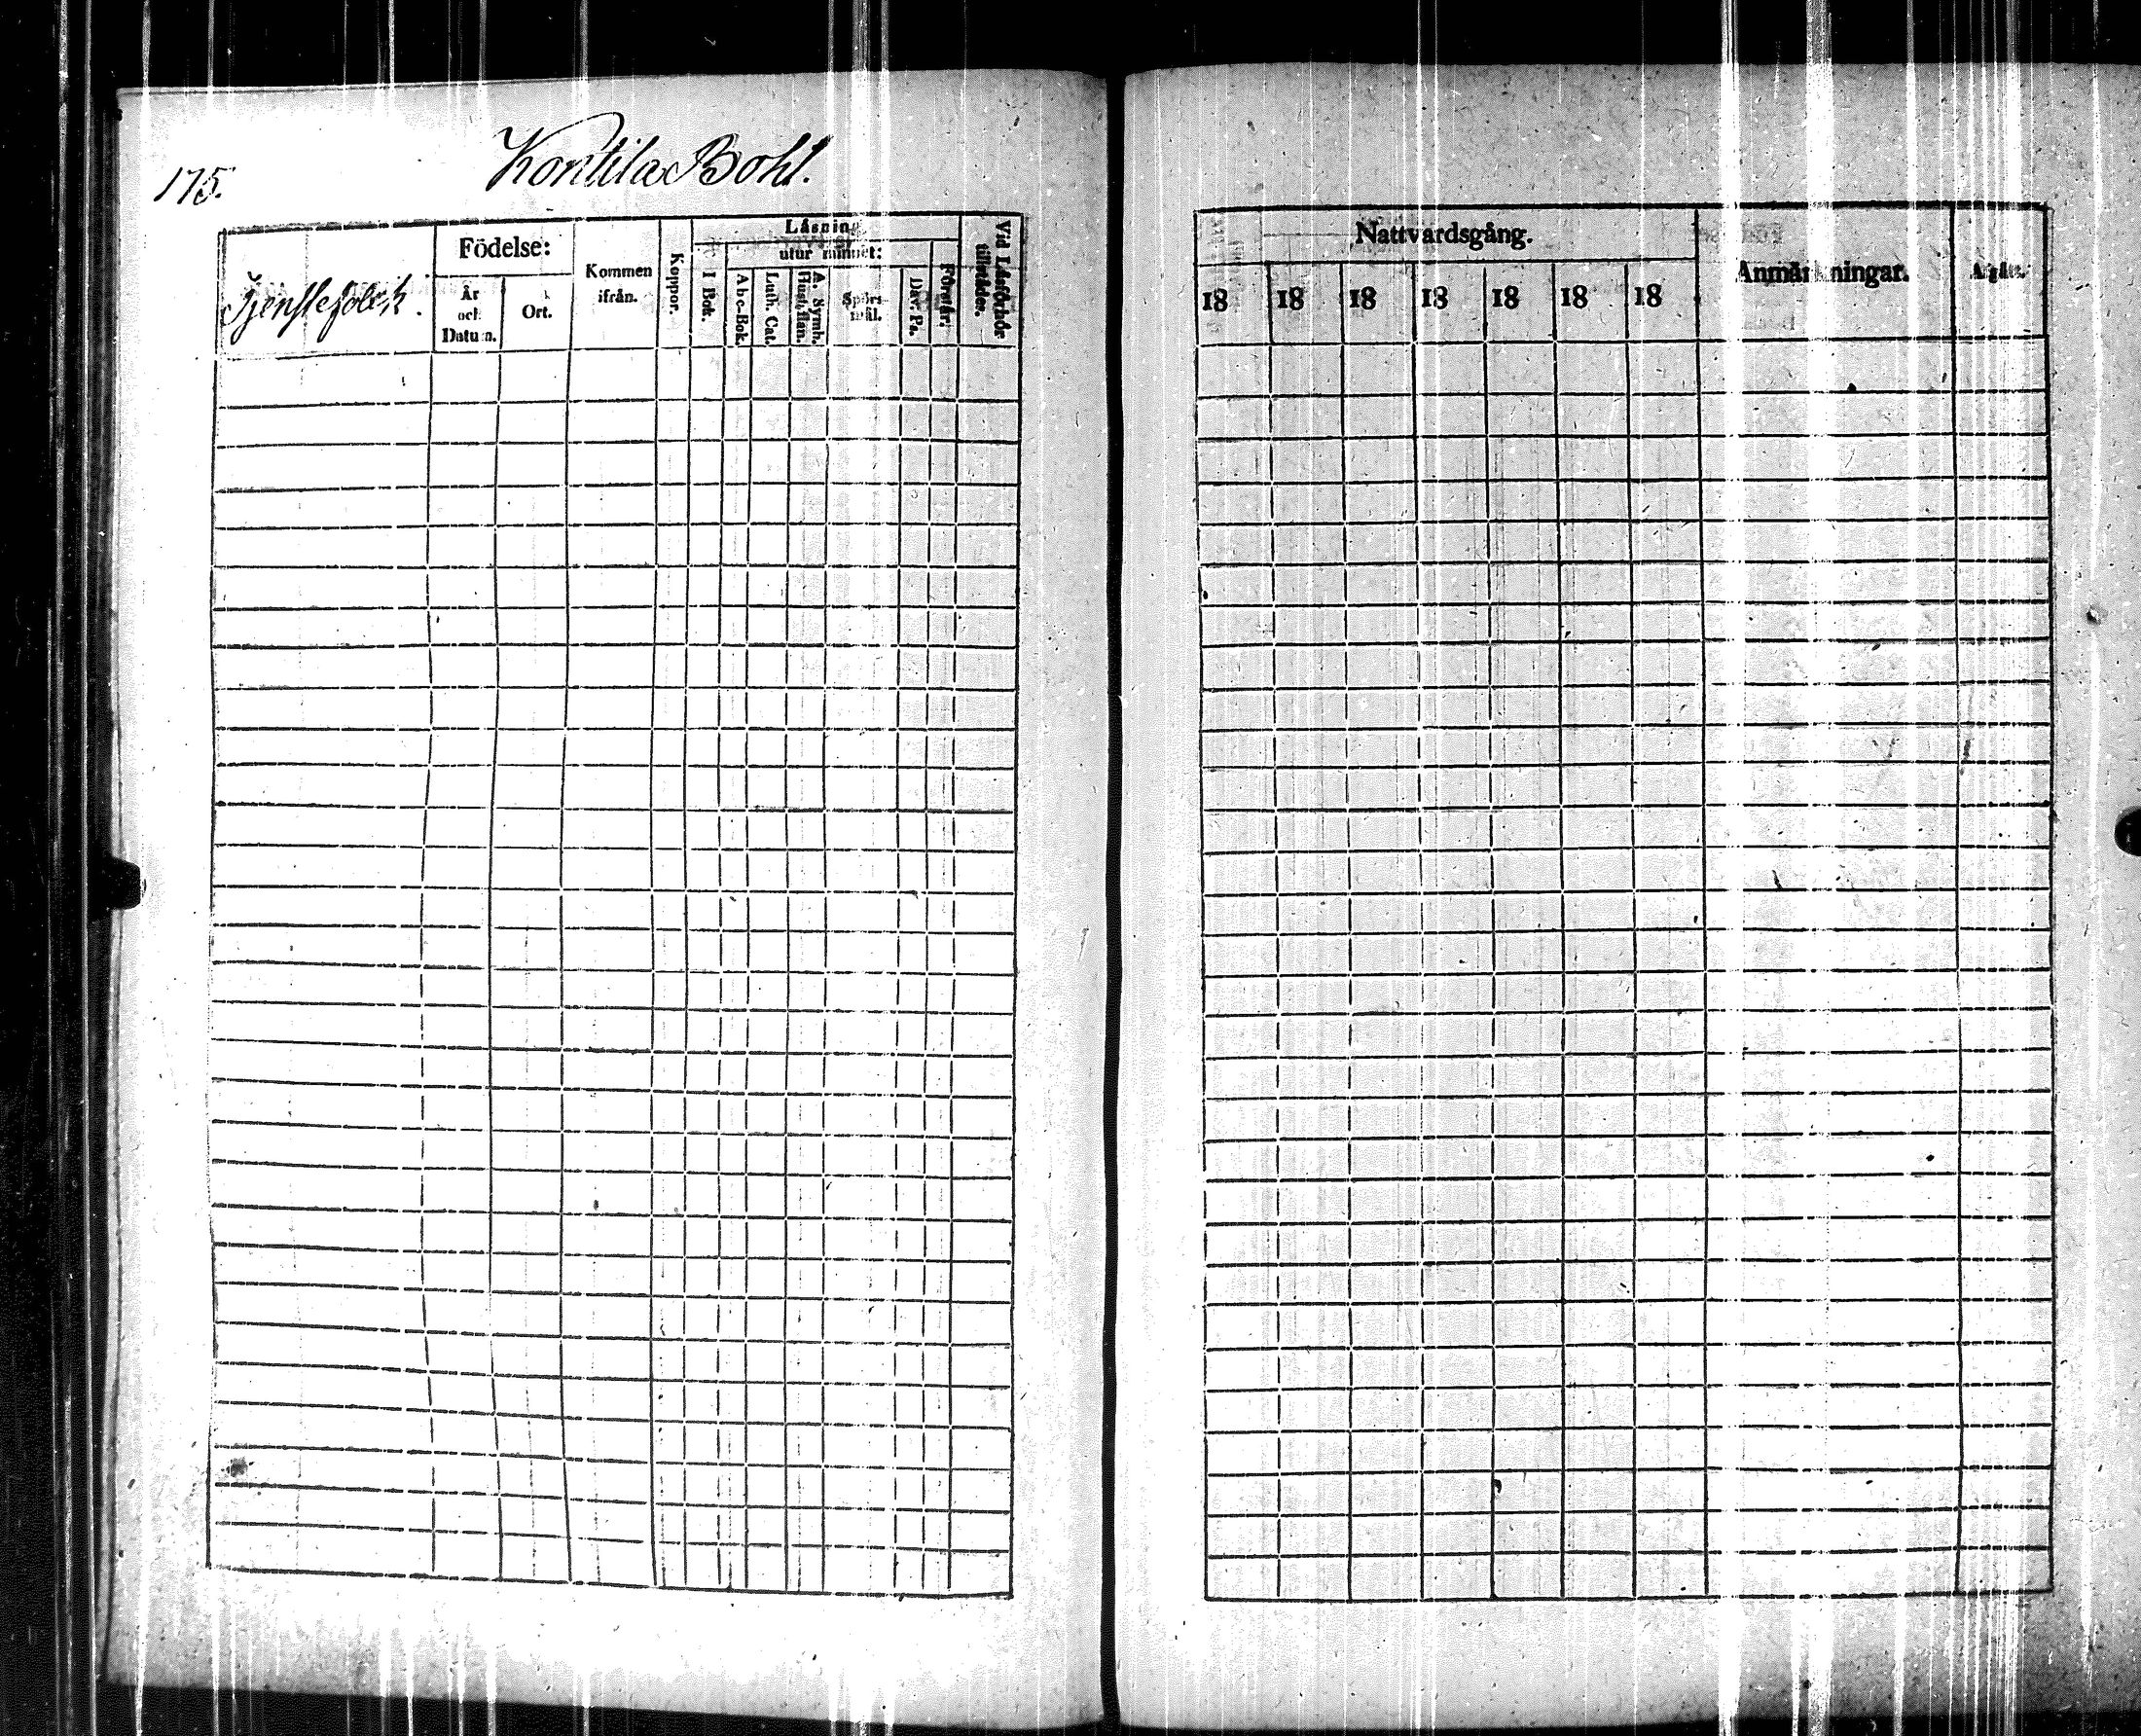 175.
Kontila Bohl.
Tjenstefolck.
Födelse:
År
och
Datum.
Ort.
Kommen
ifrån.
Koppor.
Läsning
utur minnet:
I Bok.
Abc-Bok.
Luth. Cat.
A. Symb.
Hustaflan.
Spörs-
mål.
Dav. Ps.
Förstår.
Vid Läsförhör
tillstädes.
Nattvardsgång.
18 18 18 18 18 18 18
Anmärkningar.
Afgått.